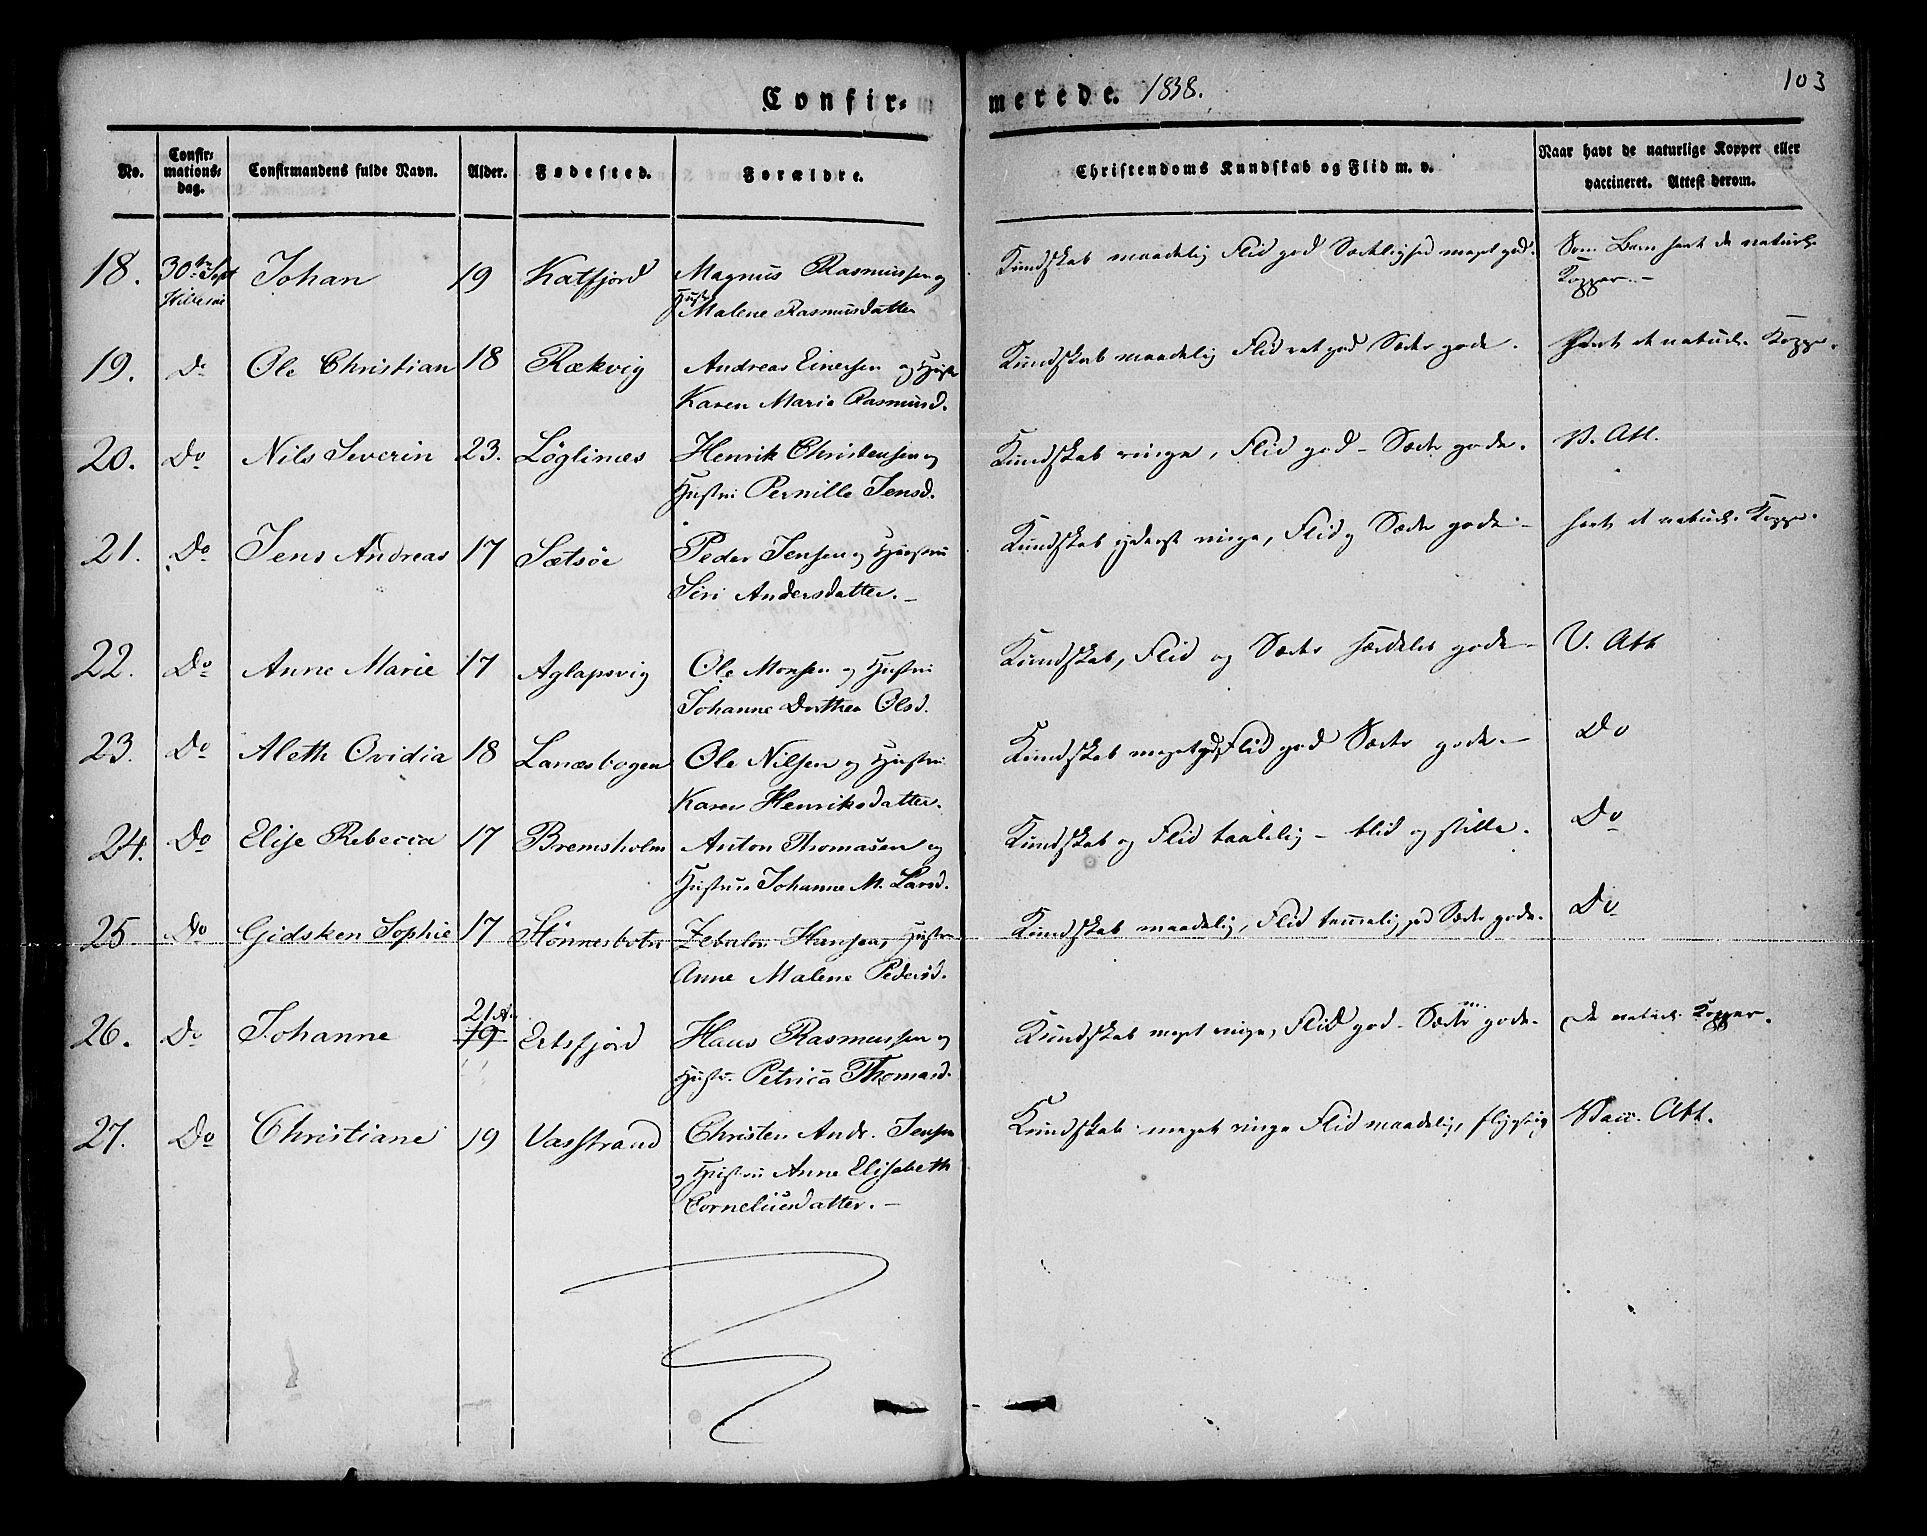 Confir-
merede. 1838.
103
No.
Confir-
mations-
dag.
Confirmandens fulde Navn.
Alder.
Fødested.
Forældre.
Christendoms Kundskab og Flid m. v.
Naar havt de naturlige Kopper eller
vaccineret. Attest derom.
18. 30te Sept Johan 19 Katfjord Magnus Rasmussen og Kundskab maadelig Flid god Sædelighed meget god. Som Barn havt de naturl.
Hillesøe Hustr Malene Rasmusdatter Kopper.-
19. Do Ole Christian 18 Rækvig Andreas Einersen og Hustr Kundskab maadelig Flid ret god Sæder gode. havt de naturl. Kopper.
Karen Maria Rasmusd.
20. Do Nils Severin 23. Løglinæs Henrik Christensen og Kundskab ringe, Flid god - Sæder gode. V. Att.
Hustru Pernille Jensd.
21. Do Jens Andreas 17 Sætsøe Peder Jensen og Hustru Kundskab yderst ringe, Flid og Sæder gode. havt de naturl. Kopper.
Siri Andersdatter.-
22. Do Anne Marie 17 Aglapsvig Ole Monsen og Hustru Kundskab, Flid og Sæder særdeles gode- V. Att
Johanne Dorthea Olsd.
23. Do Aleth Ovidia 18 Lanæsbogen Ole Nilsen og Hustru Kundskab meget gd, Flid god Sæder gode.- Do
Karen Henriksdatter.
24. Do Elise Rebecca 17 Bremsholm Anton Thomasen og Kundskab og Flid taalelig - blid og stille. Do
Hustrue Johanne M. Larsd.
25 Do Gidsken Sophie 17 Stønnesbotn Zebulon Hansen, Hustru Kundskab maadelig, Flid temmelig god Sæder gode. Do
Anne Malene Pedersd.
26. Do Johanne 21 A. Ertsfjord Hans Rasmussen og Kundskab meget ringe, Flid god - Sæder gode. De naturl. Kopper.
19
Hustr. Petrica Thomasd.
27. Do Christiane 19 Vasstrand Christen Andr. Jensen Kundskab meget ringe Flid maadelig, flygtig Vacc. Att.
og Hustru Anne Elisabeth
Corneliusdatter.-